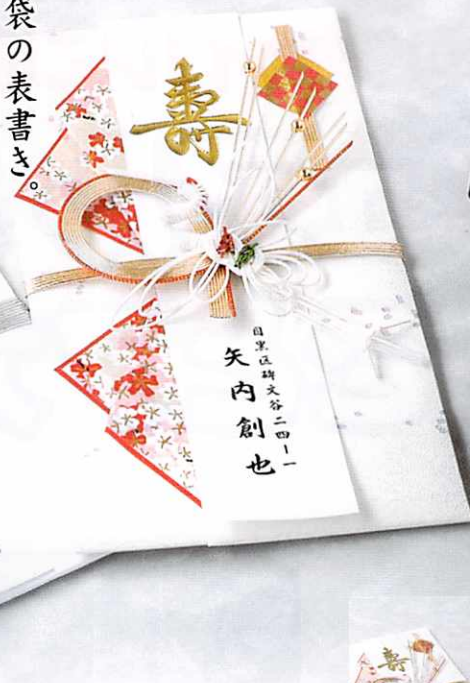 袋の表書き。
壽
目黒区碑文谷二四ー一
矢内創也
壽